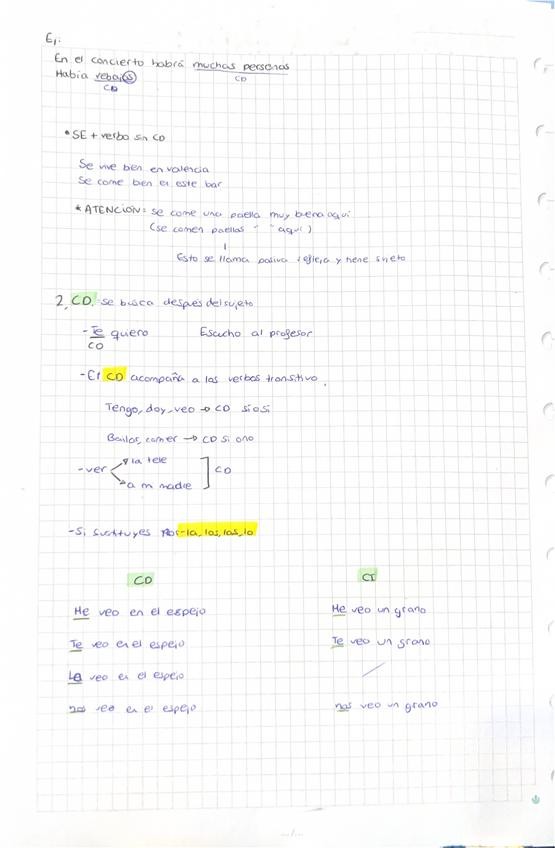 Ej:
En el concierto habrá muchas personas
CD
Había rebajas
CD
• SE + verbo sin CD
Se vive bien en valencia
Se come bien en este bar
* ATENCION: se come una paella muy buena aquí
(se comen paellas " " aquí)
Esto se llama pasiva refleja y tiene sujeto
2, CD: se busca después del sujeto
- Te quiero Escucho al profesor
CD
- El CD acompaña a los verbos transitivo.
Tengo, doy, veo → CD si o si
Bailar, comer → CD si o no
- ver la tele
a mi madre
CD
- Si sustituyes por - la, los, las, lo
CD CI
Me veo en el espejo Me veo un grano
Te veo en el espejo Te veo un grano
La veo en el espejo
nos veo en el espejo nos veo un grano